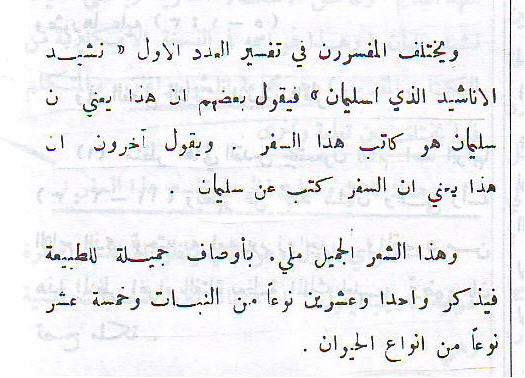 ويختلف المفسرون في تفسير العدد الاول « نشيد
الاناشيد الذي لسليمان » فيقول بعضهم ان هذا يعني ن
سليمان هو كاتب هذا السفر . ويقول آخرون ان
هذا يعني ان السفر كتب عن سليمان .
وهذا الشعر الجميل ملي. بأوصاف جميلة للطبيعة
فيذكر واحدا وعشرين نوعاً من النبات وخمسة عشر
نوعاً من انواع الحيوان .